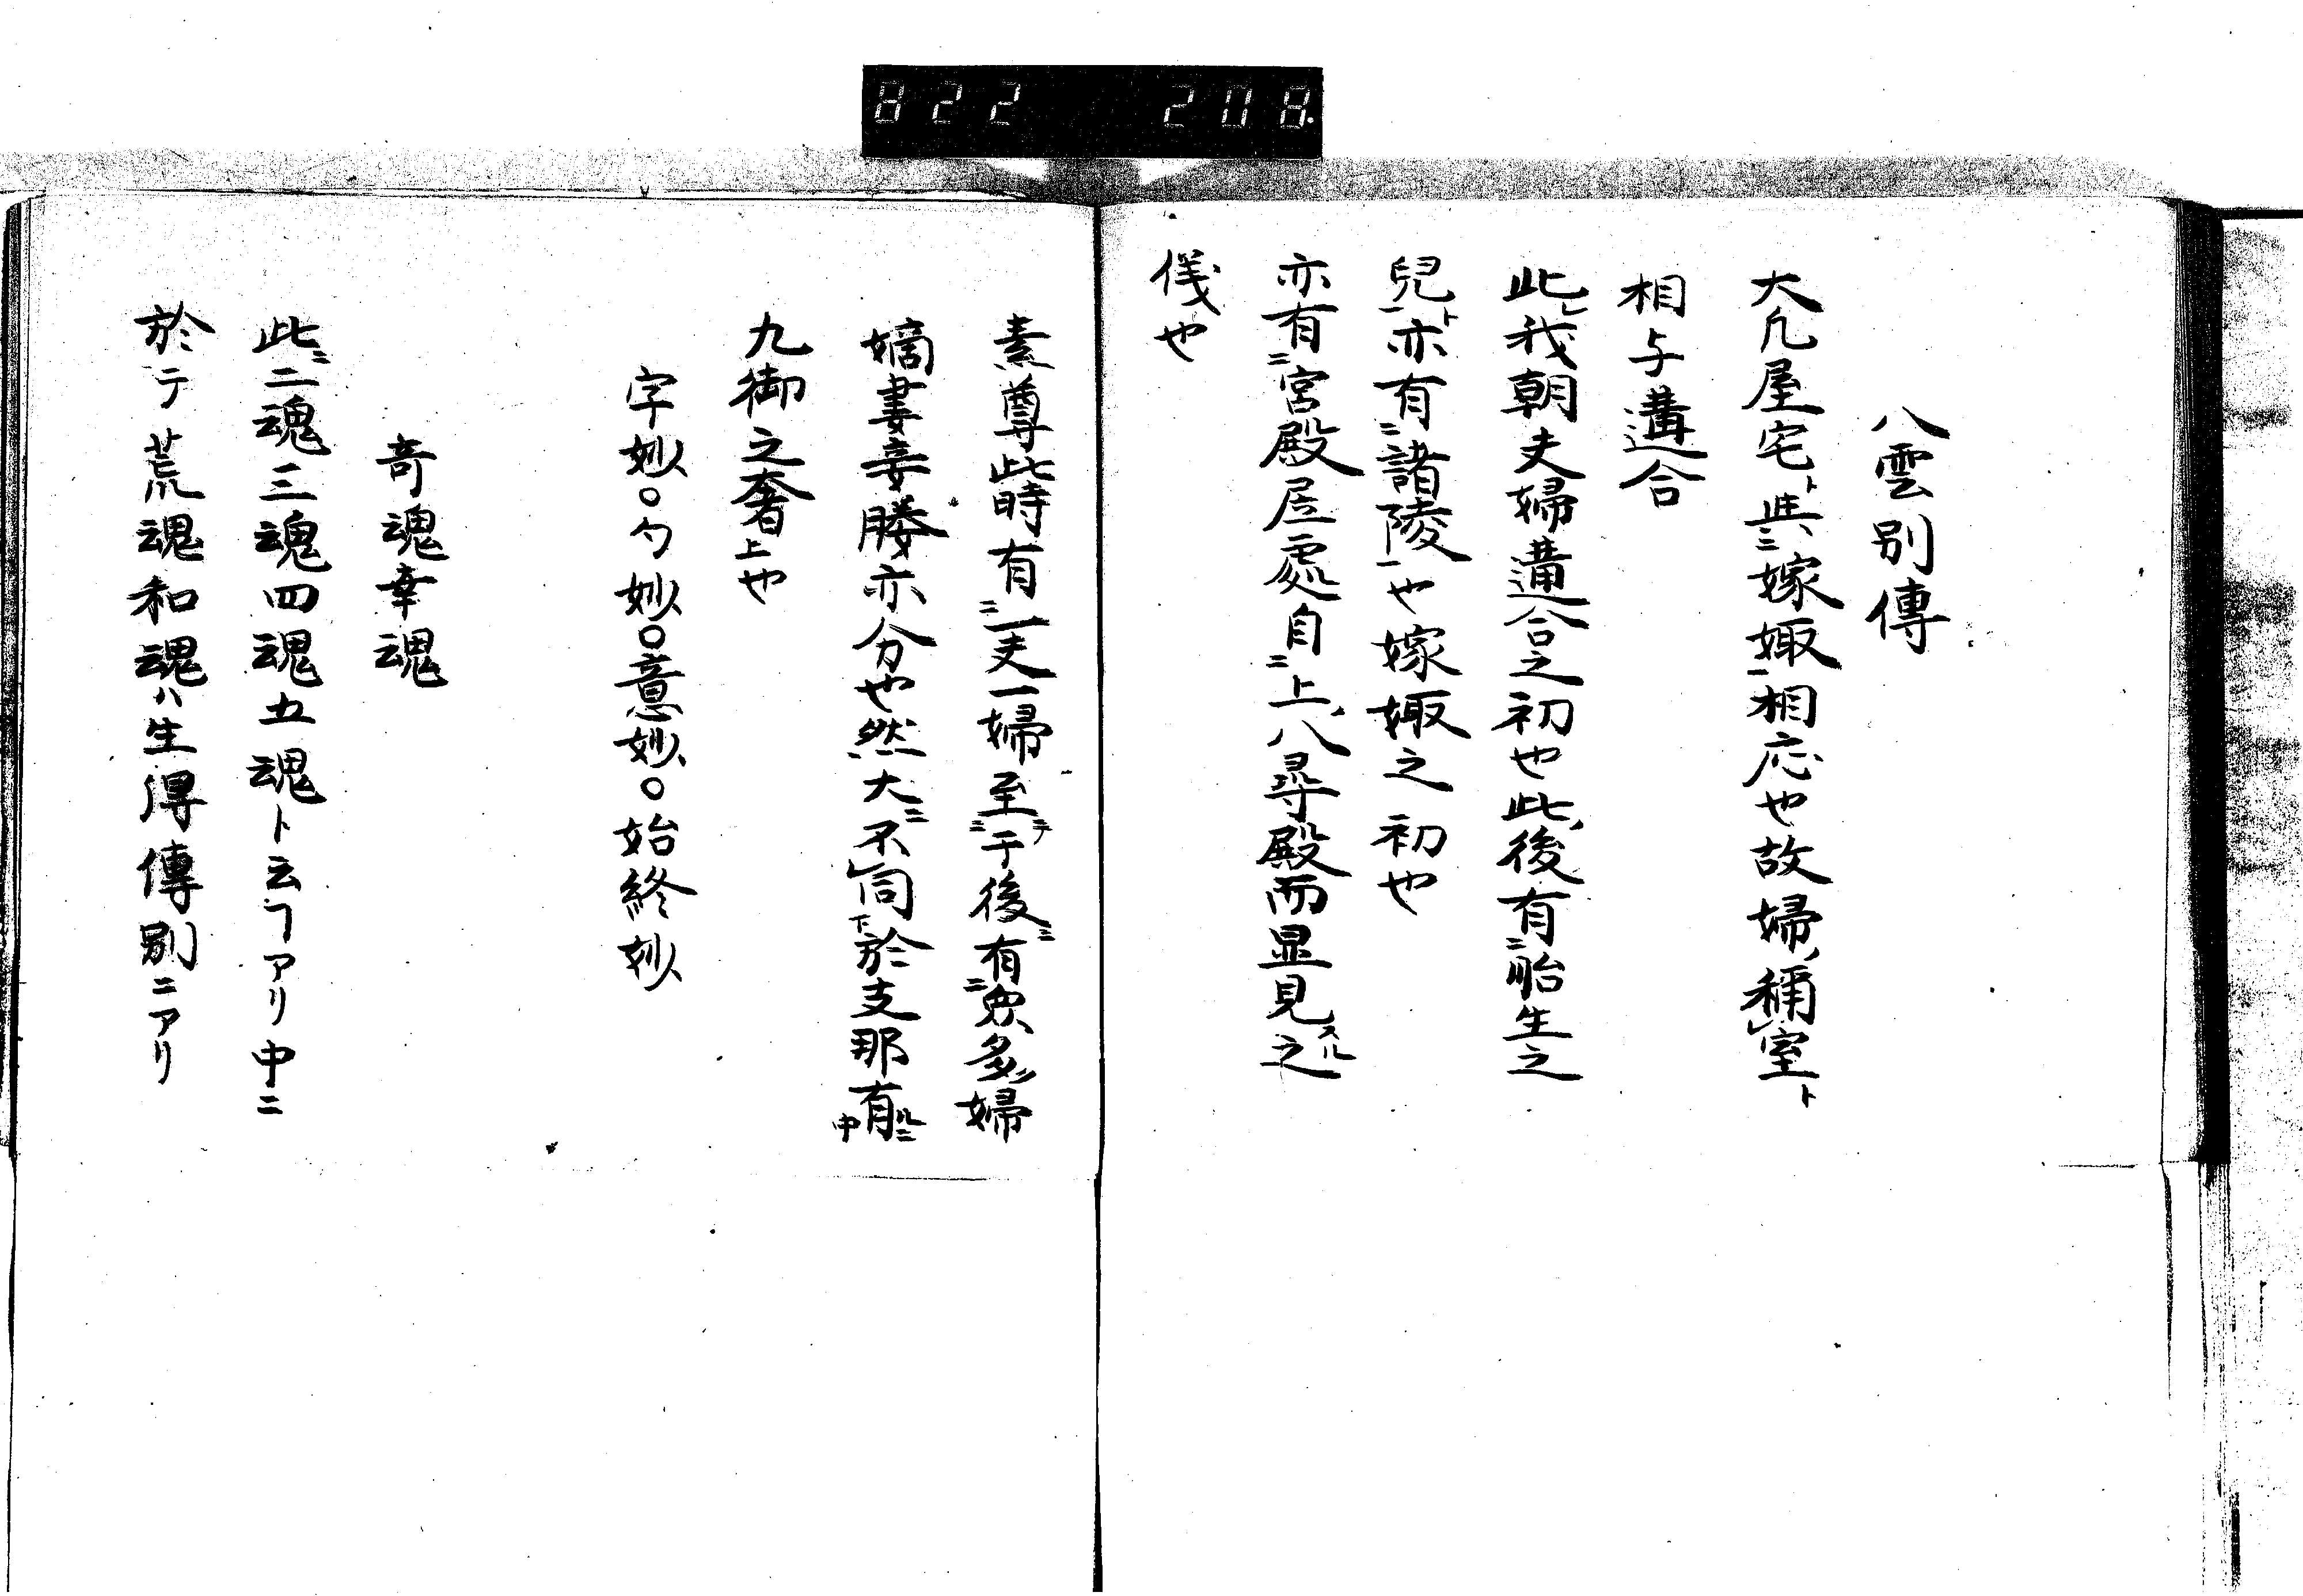 822 208.
八雲別傳
大凡屋宅ト與ニ嫁娵一相応也故婦ノ稱レ室ト
相与遘合
此レ我朝夫婦遘合之初也此後有二胎生之
兒一ト亦有二諸陵一也嫁娵之初也
亦有二宮殿居處自二上八尋殿而显見スル之
儀也
素尊此時有二一夫一婦至ニ于後ニ有二衆多婦
嫡妻妾媵亦分也然大ニ不レ同下於支那有ルニ中
九御之奢上也
字妙○勺妙○意妙○始終妙
竒魂幸魂
此ニ二魂三魂四魂五魂ト云ヿアリ中ニ
於テ荒魂和魂ハ生得傳別ニアリ